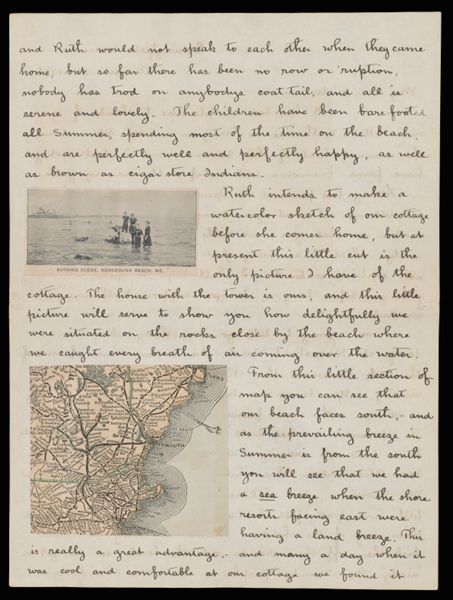 and Ruth would not speak to each other when they came
home, but so far there has been no row or 'ruption,
nobody has trod on anybodys coat tail, and all is
serene and lovely. The children have been barefooted
all Summer, spending most of the time on the beach,
and are perfectly well and perfectly happy, as well
as brown as cigar store Indians.
Ruth intends to make a
watercolor sketch of our cottage
before she comes home, but at
present this little cut is the
only picture I have of the
BATHING SCENE, KENNEBUNK BEACH, ME.
cottage. The house with the tower is ours, and this little
picture will serve to show you how delightfully we
were situated on the rocks close by the beach where
we caught every breath of air coming over the water.
From this little section of
map you can see that
our beach faces south, - and
as the prevailing breeze in
Summer is from the south
you will see that we had
a sea breeze when the shore
resorts facing east were
having a land breeze. This
is really a great advantage, - and many a day when it
was cool and comfortable at our cottage we found it